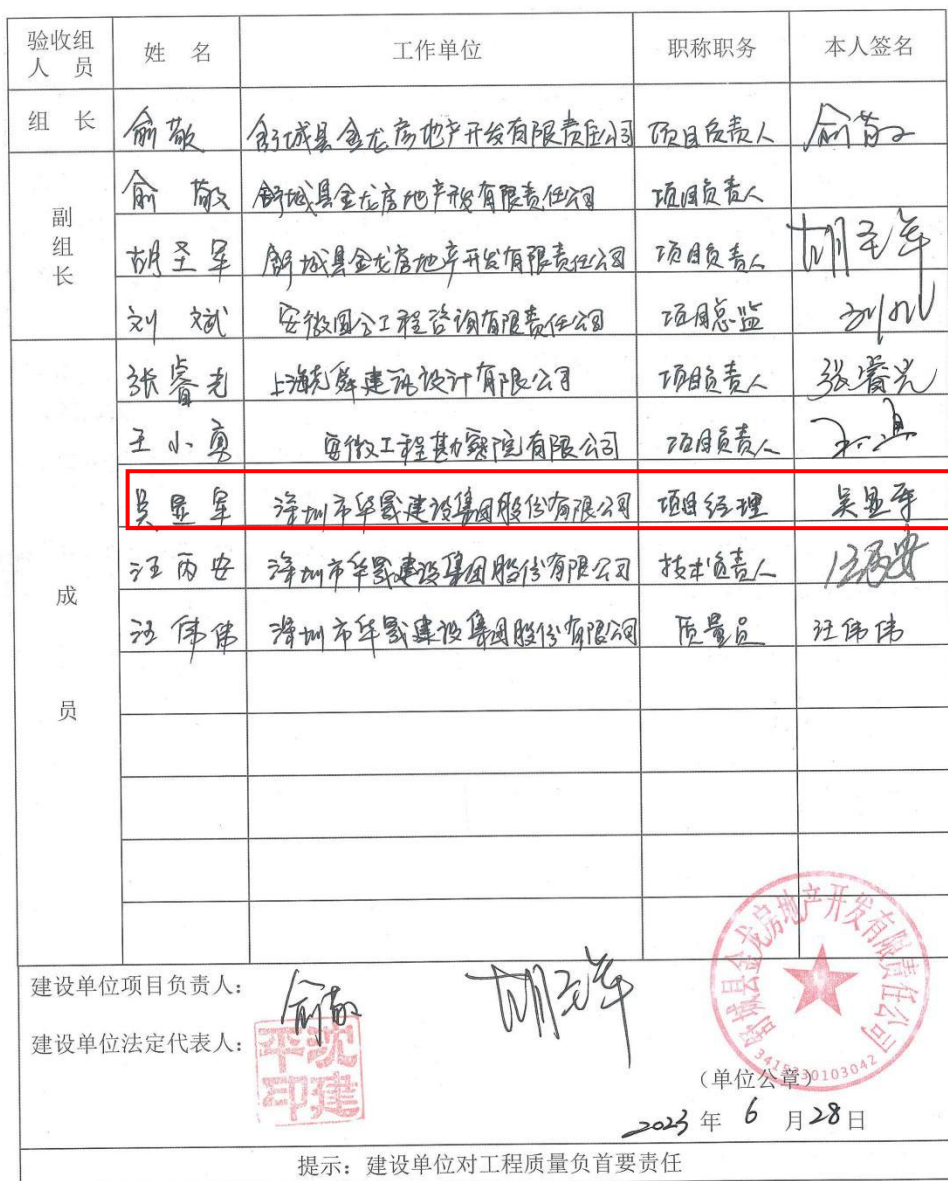 验收组人 员 姓 名 工作单位 职称职务 本人签名
组 长 俞敬 舒城县金龙房地产开发有限责任公司 项目负责人 俞敬
副组长 俞 敬 舒城县金龙房地产开发有限责任公司 项目负责人
胡圣军 舒城县金龙房地产开发有限责任公司 项目负责人 胡圣军
刘 斌 安徽国合工程咨询有限责任公司 项目总监
成员 张睿光 建筑设计有限公司 项目负责人 张睿光
王小勇 安徽工程勘察院有限公司 项目负责人
吴显军 深圳市华晟建设集团股份有限公司 项目经理 吴显军
汪丙安 深圳市华晟建设集团股份有限公司 技术负责人 汪丙安
汪伟伟 深圳市华晟建设集团股份有限公司 质量员 汪伟伟
建设单位项目负责人： 俞敬 胡圣军
建设单位法定代表人： 沈建平印
舒城县金龙房地产开发有限责任公司
3415230103042
（单位公章）
2023 年 6 月 28 日
提示：建设单位对工程质量负首要责任